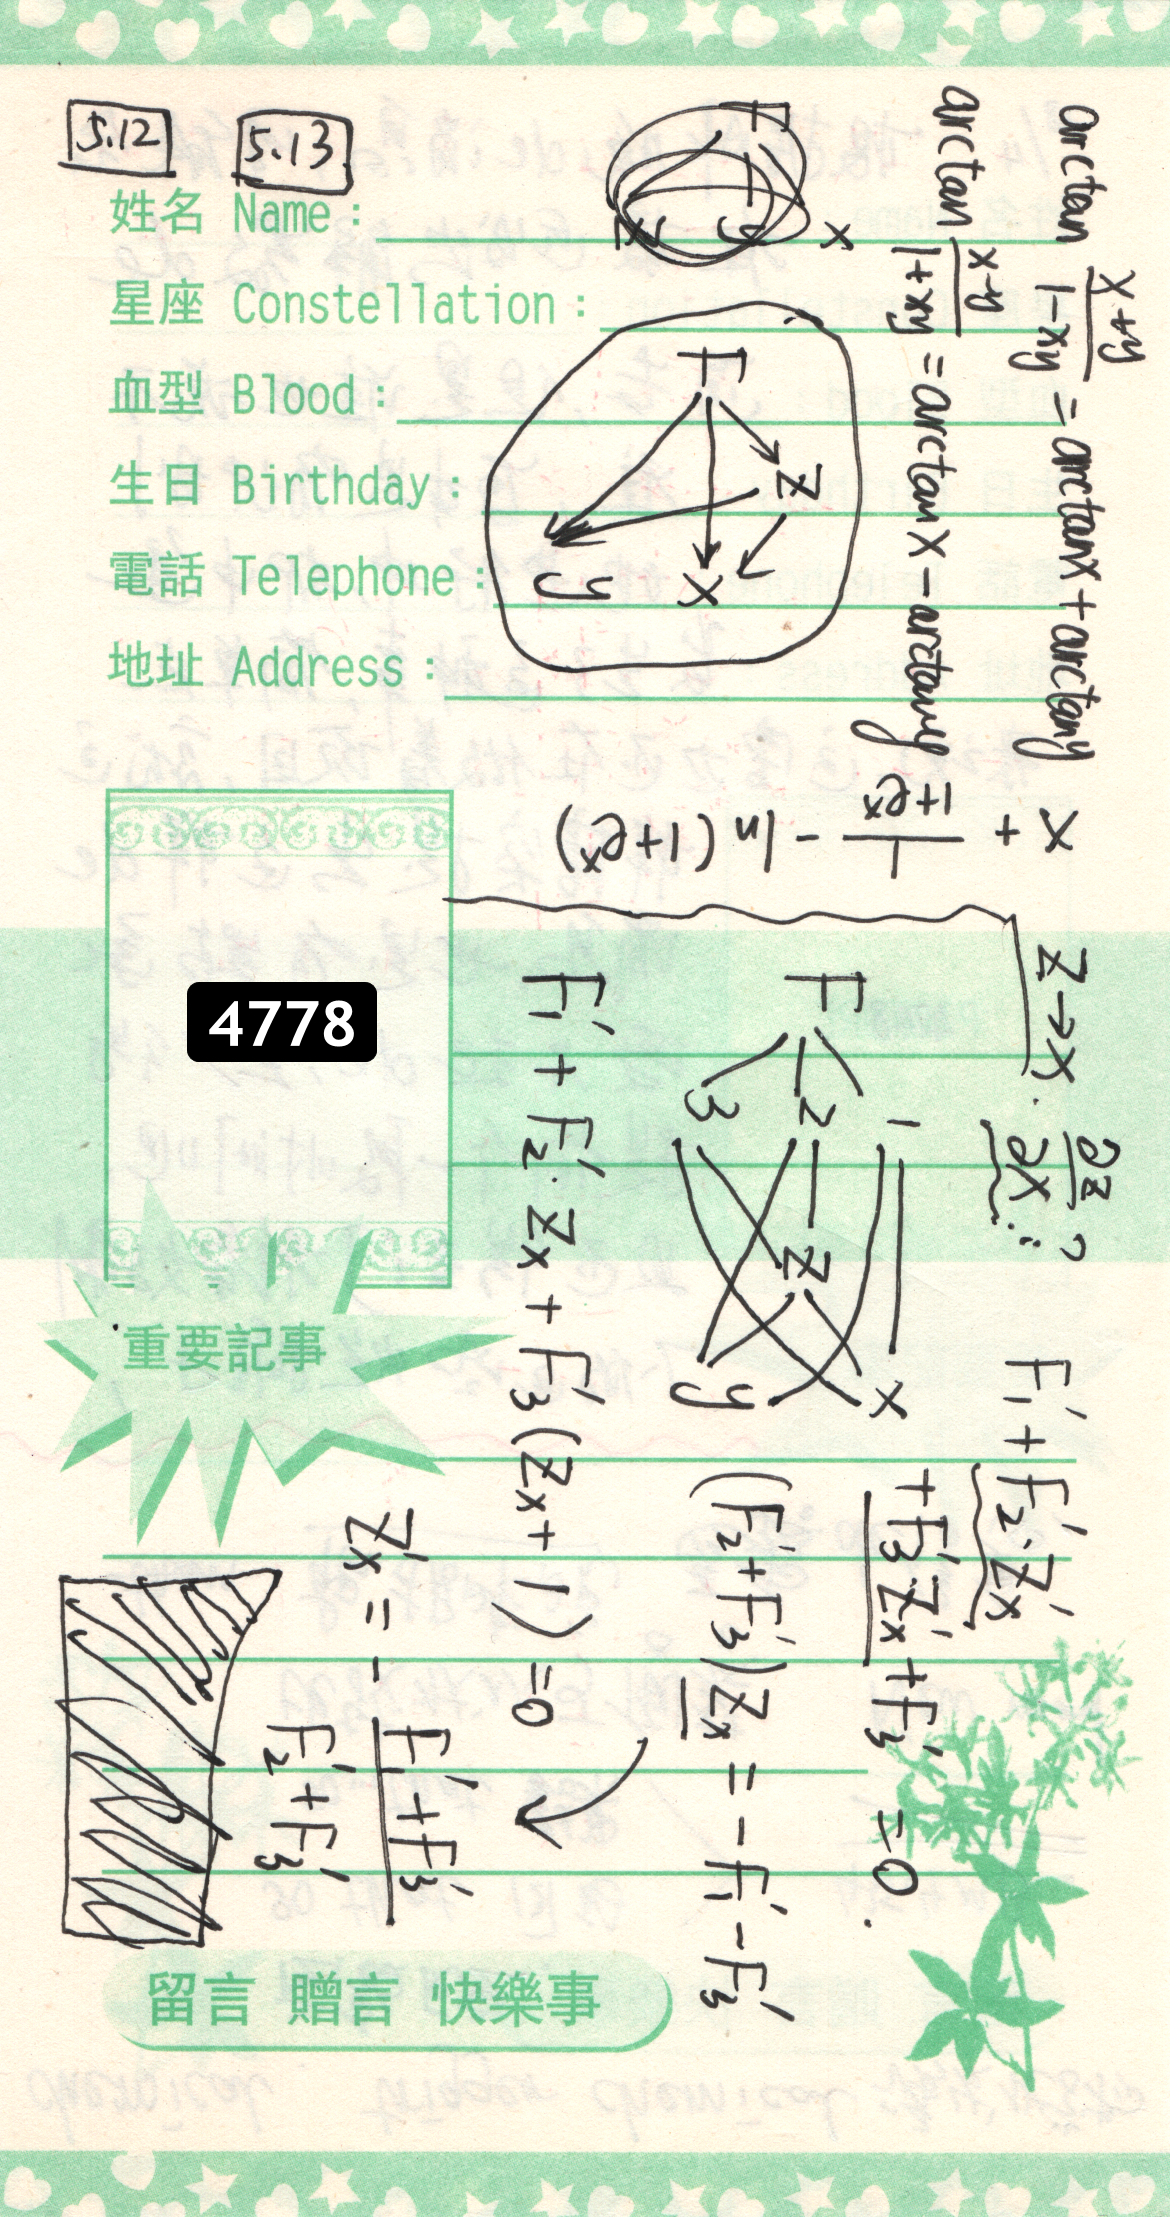 5.12 5.13
姓名 Name :
星座 Constellation :
血型 Blood :
生日 Birthday :
電話 Telephone :
地址 Address :
4778
重要記事
留言 贈言 快樂事
arctan (x+y)/(1-xy) = arctanx + arctany
arctan (x-y)/(1+xy) = arctanx - arctany
F
x
y
z
F
z
y x
x + 1/(1+eˣ) - ln(1+eˣ)
z→x. ∂z/∂x ?
F
1 2 3
z
x y
F₁' + F₂'·Zx'
+F₃'·Zx' + F₃' =0.
(F₂'+F₃')Zx = -F₁'-F₃'
F₁' + F₂'·Zx + F₃'(Zx+1) =0
Zx' = - (F₁'+F₃')/(F₂'+F₃')